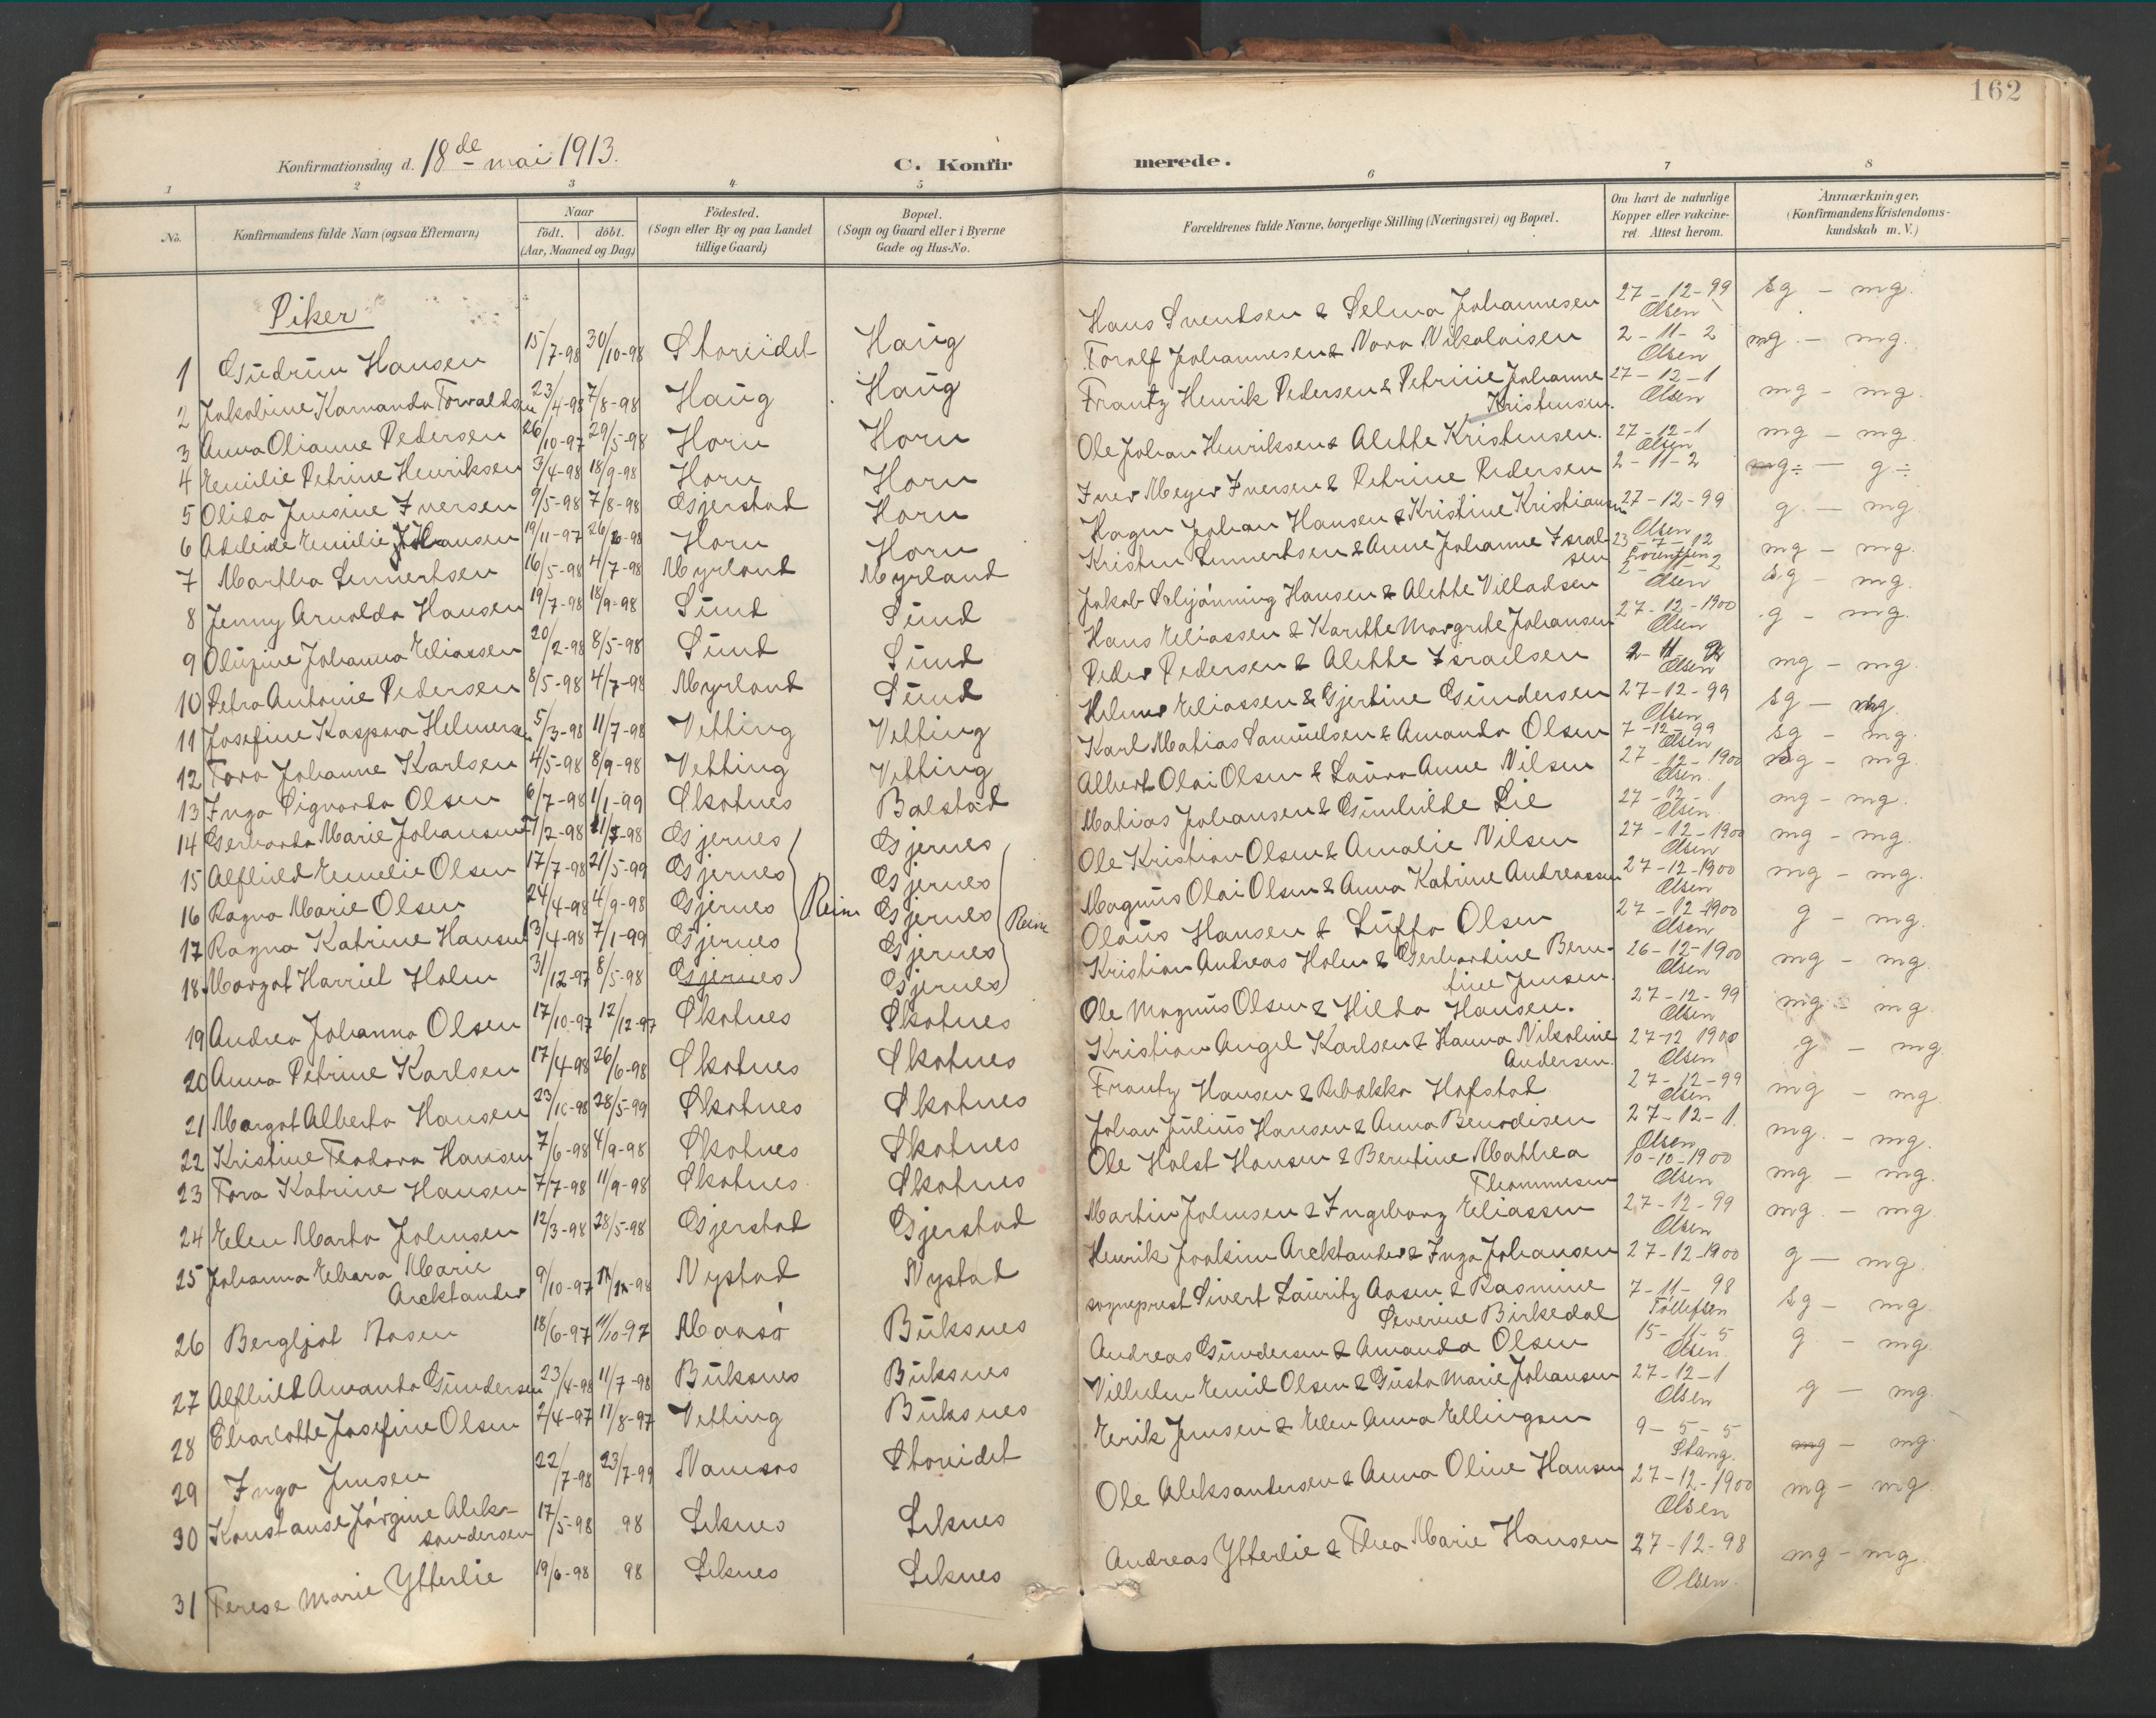 162
Konfirmationsdag d. 18de mai 1913.
C. Konfirmerede.
1 2 3 4 5 6 7 8
No.
Konfirmandens fulde Navn (ogsaa Efternavn)
Naar
födt. döbt.
(Aar, Maaned og Dag)
Födested.
(Sogn eller By og paa Landet
tillige Gaard)
Bopæl.
(Sogn og Gaard eller i Byerne
Gade og Hus-No.
Forældrenes fulde Navne, borgerlige Stilling (Næringsvei) og Bopæl.
Om havt de naturlige
Kopper eller vakcine-
ret. Attest herom.
Anmærkninger.
(Konfirmandens Kristendoms-
kundskab m. V.)
Piker
1 Gudrun Hansen 15/7-98 30/10-98 Storeidet Haug Hans Svendsen & Selma Johannesen 27-12-99 Olsen sg - mg.
2 Jakobine Kamanda Torvaldsen 23/4-98 7/8-98 Haug Haug Torolf Johannesen & Nora Nikolaisen 2-11-2 Olsen mg. - mg.
3 Anna Olianne Pedersen 26/10-97 29/5-98 Horn Horn Frantz Henrik Pedersen & Petrine Johanne Kristensen. 27-12-1 Olsen mg - mg.
4 Emilie Petrine Henriksen 3/4-98 18/9-98 Horn Horn Ole Johan Henriksen & Alethe Kristensen. 27-12-1 Olsen mg - mg.
5 Olida Jensine Iversen 9/5-98 7/8-98 Gjerstad Horn Iver Meyer Iversen & Petrine Pedersen 2-11-2 mg÷ - g÷
6 Adleide Emilie Hansen 19/11-97 Horn Horn Hagen Johan Hansen & Kristine Kristiansen 27-12-99 Olsen g. - mg.
7 Martha Lennertsen 16/5-98 4/7-98 Myrland Myrland Kristen Lennertsen & Anne Johanne Israelsen 23-7-12 mg - mg.
8 Jenny Arnolda Hansen 19/7-98 18/9-98 Sund Sund Jakob Hansen & Alethe Villadsen 2-11-2 Olsen sg - mg.
9 Johanna Eliassen 20/2-98 8/5-98 Sund Sund Hans Eliassen & Karethe Margrete Johansen 27-12-1900 Olsen g - mg.
10 Petra Antonie Pedersen 8/5-98 4/7-98 Myrland Sund Peder Pedersen & Alethe Israelsen 2-11 Olsen mg - mg.
11 Josefine Kaspara Helmersen 5/3-98 11/7-98 Vetting Vetting Helmer Eliassen & Gjertine Gundersen 27-12-99 Olsen sg - mg.
12 Tora Johanne Karlsen 4/5-98 8/9-98 Vetting Vetting Karl Matias Samuelsen & Amanda Olsen 7-12-99 Olsen sg - mg.
13 Inga Sigvarda Olsen 6/7-98 1/1-99 Skotnes Balstad Albert Olai Olsen & Laura Anne Nilsen 27-12-1900 Olsen. mg - mg.
14 Gerharda Marie Johansen Gjernes Gjernes Matias Johansen & Gunhilde Lie 27-12-1 Olsen. mg - mg.
15 Alfhild Emelie Olsen 17/7-98 21/5-99 Gjernes Gjernes Ole Kristian Olsen & Amalie Nilsen 27-12-1900 Olsen mg - mg.
16 Ragna Marie Olsen 24/4-98 4/9-98 Gjernes Reine Gjernes Reine Magnus Olai Olsen & Anna Katrine Andreassen 27-12-1900 Olsen mg - mg.
17 Ragna Katrine Hansen 13/4-98 7/1-99 Gjernes Gjernes Olaus Hansen & Luffa Olsen 27-12-1900 Olsen g - mg.
18 Margot Harriet Holm 31/12-97 8/5-98 Gjernes Gjernes Kristian Andreas Holm & Gerhardine Berntine Jensen. 26-12-1900 Olsen mg - mg.
19 Andrea Johanna Olsen 17/10-97 12/12-97 Skotnes Skotnes Ole Magnus Olsen & Hilda Hansen. 27-12-99 Olsen mg - mg.
20 Anna Petrine Karlsen 17/4-98 26/6-98 Skotnes Skotnes Kristian Angel Karlsen & Hanna Nikoline Andersen. 27-12 1900 Olsen g - mg
21 Margot Alberta Hansen 23/10-98 28/5-99 Skotnes Skotnes Frantz Hansen & Rebekka Hofstad 27-12-99 Olsen mg - mg.
22 Kristine Teodora Hansen 7/6-98 4/9-98 Skotnes Skotnes Johan Julius Hansen & Anna Benedisen 27-12-1. Olsen mg. - mg.
23 Tora Katrine Hansen 7/7-98 11/9-98 Skotnes Skotnes Ole Holst Hansen & Berntine Mathea Thommesen 10-10-1900 Olsen mg - mg.
24 Elen Marta Johnsen 12/3-98 28/5-98 Gjerstad Gjerstad Martin Johnsen & Ingeborg Eliassen 27-12-99 Olsen mg. - mg.
25 Johanna Ebara Marie Arcktander 9/10-97 Nystad Nystad Henrik Joakim Arcktander & Inga Johansen 27-12-1900 g - mg.
26 Bergljot Aasen 18/6-97 11/10-97 Maasö Buksnes sogneprest Sivert Lauritz Aasen & Rasmine Severine Birkedal 7-11-98 Tollefsen sg - mg.
27 Alfhild Amanda Gundersen 23/4-98 11/7-98 Buksnes Buksnes Andreas Gundersen & Amanda Olsen 15-11-5 Olsen. g. - mg.
28 Charlotte Josefine Olsen 2/4-97 17/8-97 Vetting Buksnes Vilhelm Emil Olsen & Gusta Marie Johansen 27-12-1 Olsen g - mg.
29 Inga Jensen 22/7-98 23/7-99 Namsos Storeidet Erik Jensen & Elen Anna Ellingsen 9-5-5 Stang. mg - mg.
30 Konstanse Jörgine Aleksandersen 17/5-98 98 Leknes Leknes Ole Aleksandersen & Anna Oline Hansen 27-12-1900 Olsen mg - mg.
31 Terese Marie Ytterlie 19/6-98 98 Leknes Leknes Andreas Ytterlie & Thea Marie Hansen 27-12-98 Olsen. mg - mg.